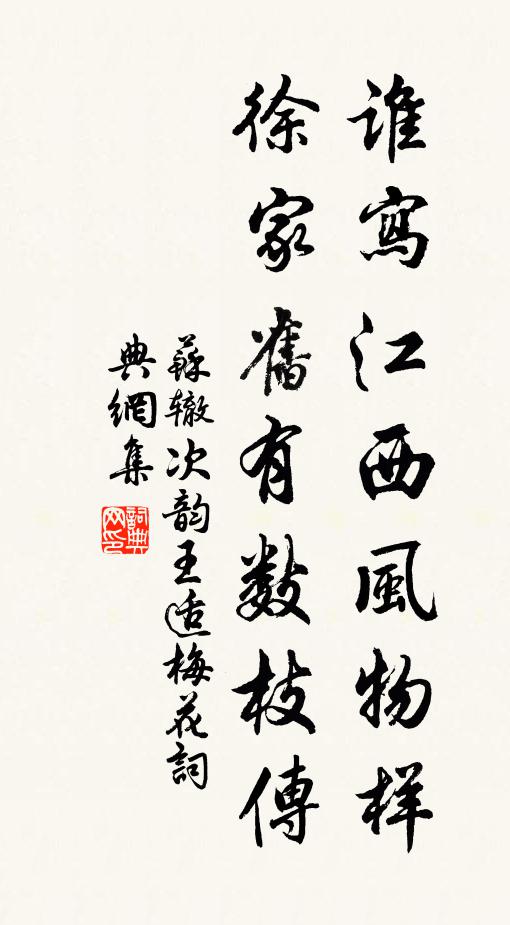 誰寫江西風物样
徐家舊有數枝傳
蘇辙次韵王适梅花詞
典網集
詞典网印